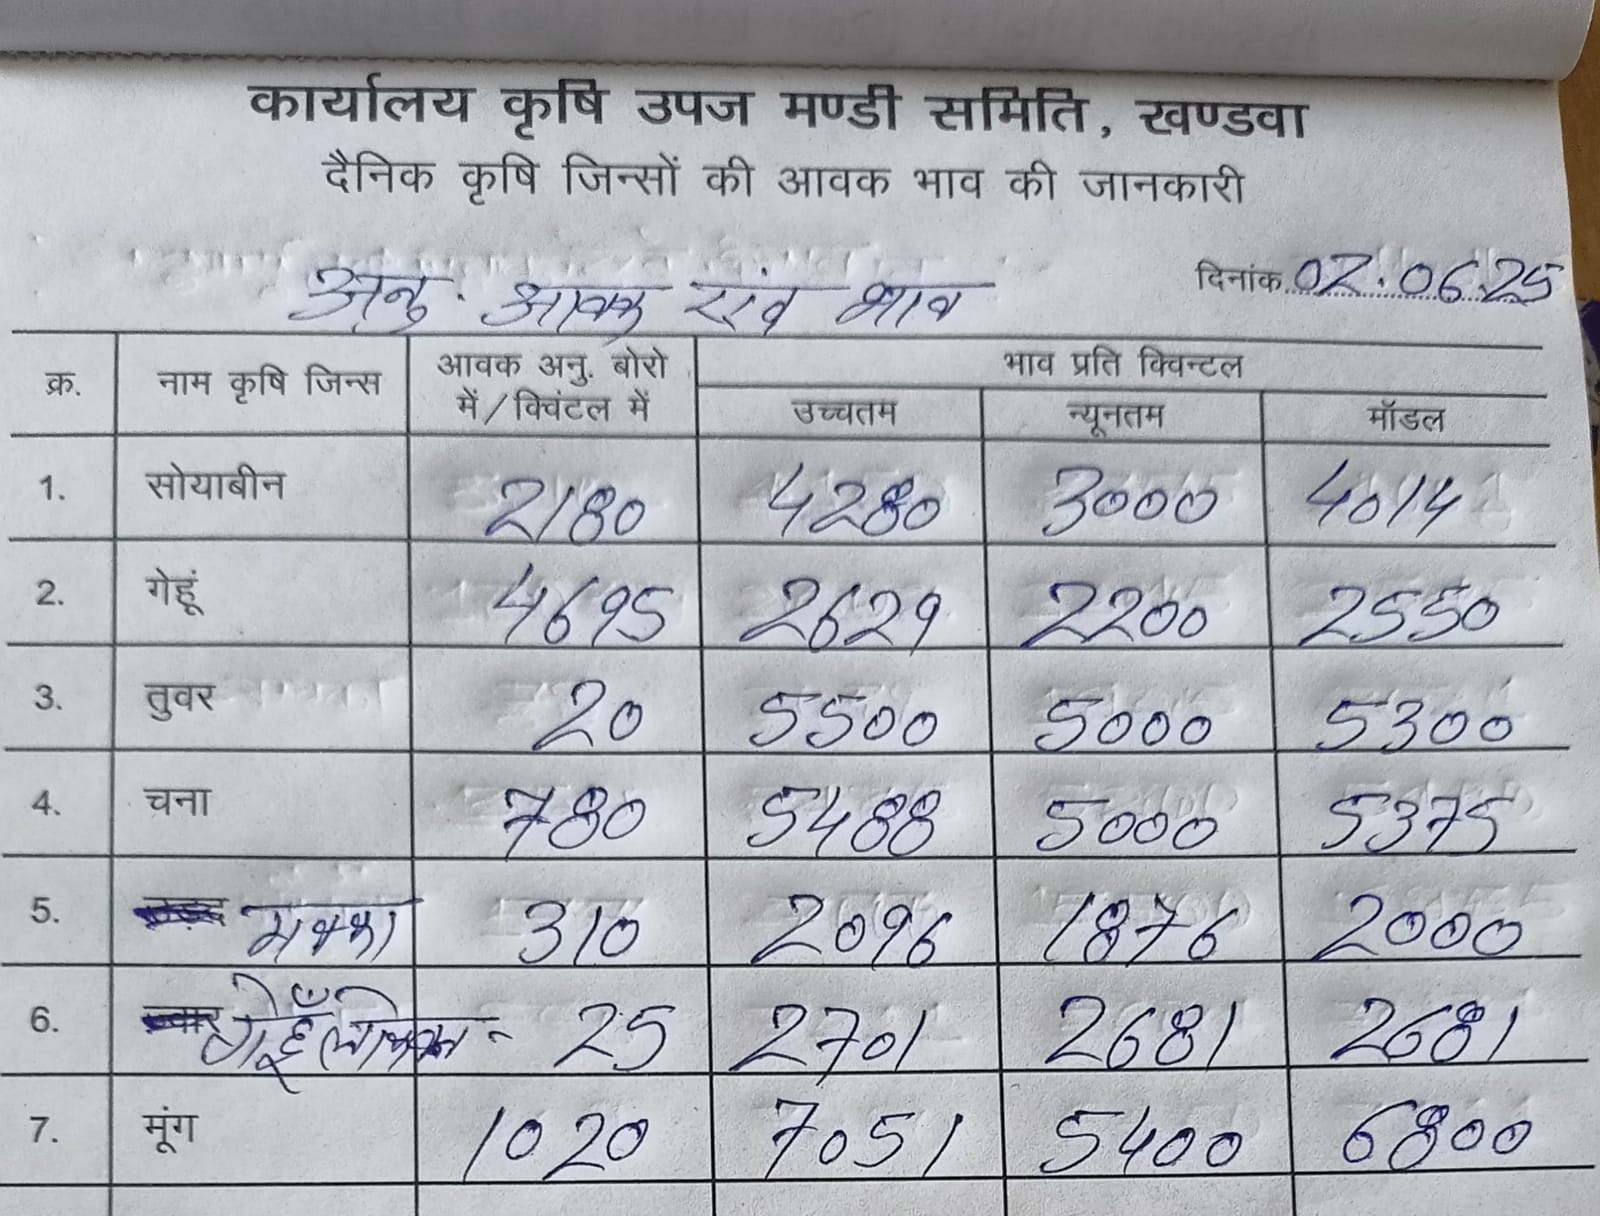 कार्यालय कृषि उपज मण्डी समिति, खण्डवा
दैनिक कृषि जिन्सों की आवक भाव की जानकारी
दिनांक 02.06.25
अनु. आवक एवं भाव
क्र. नाम कृषि जिन्स आवक अनु. बोरो में/क्विंटल में भाव प्रति क्विन्टल
उच्चतम न्यूनतम मॉडल
1. सोयाबीन 2180 4280 3000 4014
2. गेहूं 4695 2629 2200 2550
3. तुवर 20 5500 5000 5300
4. चना 780 5488 5000 5375
5. मक्का 310 2096 1876 2000
6. गेहूँ 25 2701 2681 2681
7. मूंग 1020 7051 5400 6800